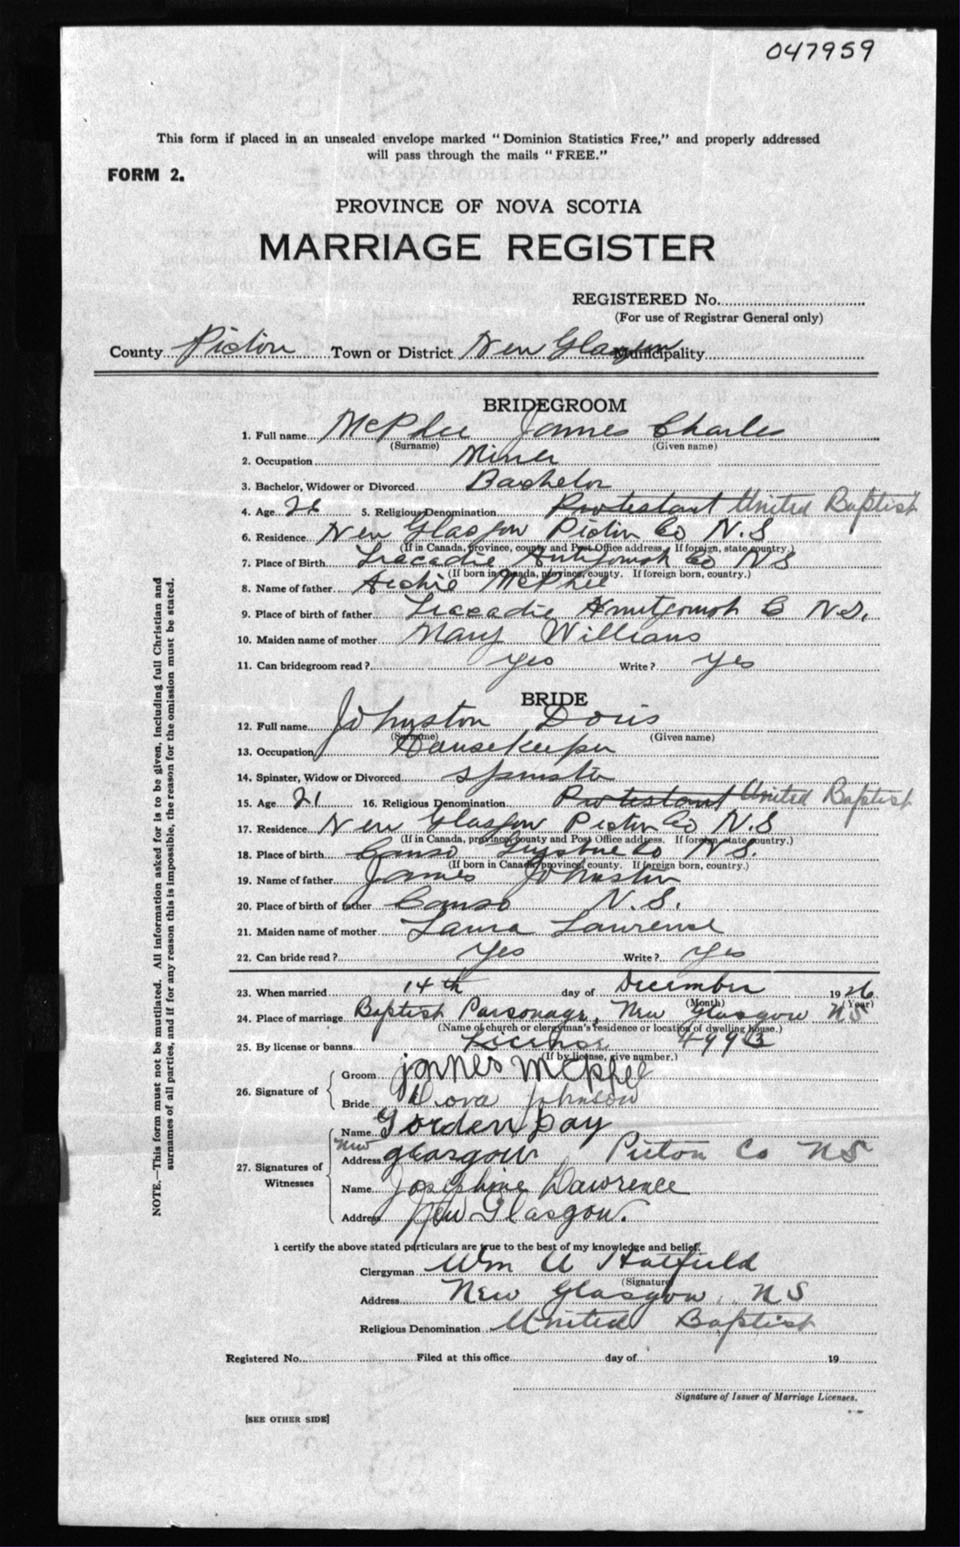 047959
This form if placed in an unsealed envelope marked "Dominion Statistics Free," and properly addressed
will pass through the mails "FREE."
FORM 2.
PROVINCE OF NOVA SCOTIA
MARRIAGE REGISTER
REGISTERED No.
(For use of Registrar General only)
County Pictou Town or District New Glasgow Municipality
BRIDEGROOM
1. Full name McPhee James Charles
(Surname) (Given name)
2. Occupation Miner
3. Bachelor, Widower or Divorced Bachelor
4. Age 26 5. Religious Denomination Protestant United Baptist
6. Residence New Glasgow Pictou Co N.S
(If in Canada, province, county and Post Office address. If foreign, state country.)
7. Place of Birth Tracadie Antigonish Co NS
(If born in Canada, province, county. If foreign born, country.)
8. Name of father Archie McPhee
9. Place of birth of father Tracadie Co N.S.
10. Maiden name of mother Mary Williams
11. Can bridegroom read? Yes Write? Yes
BRIDE
12. Full name Johnston Doris
(Surname) (Given name)
13. Occupation Housekeeper
14. Spinster, Widow or Divorced Spinster
15. Age 21 16. Religious Denomination Protestant United Baptist
17. Residence New Glasgow Pictou Co N.S
(If in Canada, province, county and Post Office address. If foreign, state country.)
18. Place of birth Canso Co N.S.
(If born in Canada, province, county. If foreign born, country.)
19. Name of father James Johnston
20. Place of birth of father Canso N.S.
21. Maiden name of mother Laura Lawrence
22. Can bride read? Yes Write? Yes
23. When married 14th day of December 1926
(Month) (Year)
24. Place of marriage Baptist Parsonage, New Glasgow NS
(Name of church or clergyman's residence or location of dwelling house.)
25. By license or banns License
(If by license, give number.)
26. Signature of
Groom James McPhee
Bride Dora Johnson
27. Signatures of Witnesses
Name Gorden Day
Address New Glasgow Picton Co NS
Name Josephine Lawrence
Address New Glasgow.
I certify the above stated particulars are true to the best of my knowledge and belief.
Clergyman Wm U Hatfield
(Signature)
Address New Glasgow, NS
Religious Denomination United Baptist
Registered No. Filed at this office day of 19
Signature of Issuer of Marriage Licenses.
[SEE OTHER SIDE]
NOTE.—This form must not be mutilated. All information asked for is to be given, including full Christian and
surnames of all parties, and if for any reason this is impossible, the reason for the omission must be stated.